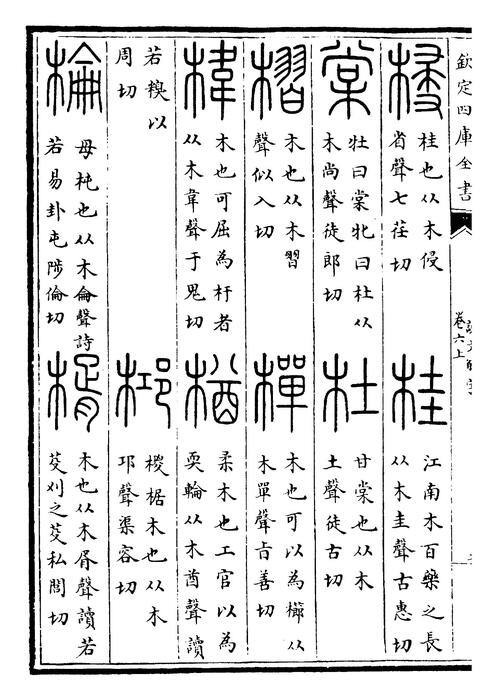 欽定四庫全書
說文解字
卷六上
梫
桂也从木侵
省聲七荏切
桂
江南木百藥之長
从木圭聲古惠切
棠
牡曰棠牝曰杜从
木尚聲徒郎切
杜
甘棠也从木
土聲徒古切
槢
木也从木習
聲似入切
樿
木也可以為櫛从
木單聲㫖善切
椲
木也可屈為杅者
从木韋聲于鬼切
楢
柔木也工官以為
耎輪从木酋聲讀
若糗以
周切
桏
椶椐木也从木
邛聲渠容切
棆
母杶也从木侖聲詩
若易卦屯陟倫切
楈
木也从木胥聲讀若
芟刈之芟私閭切